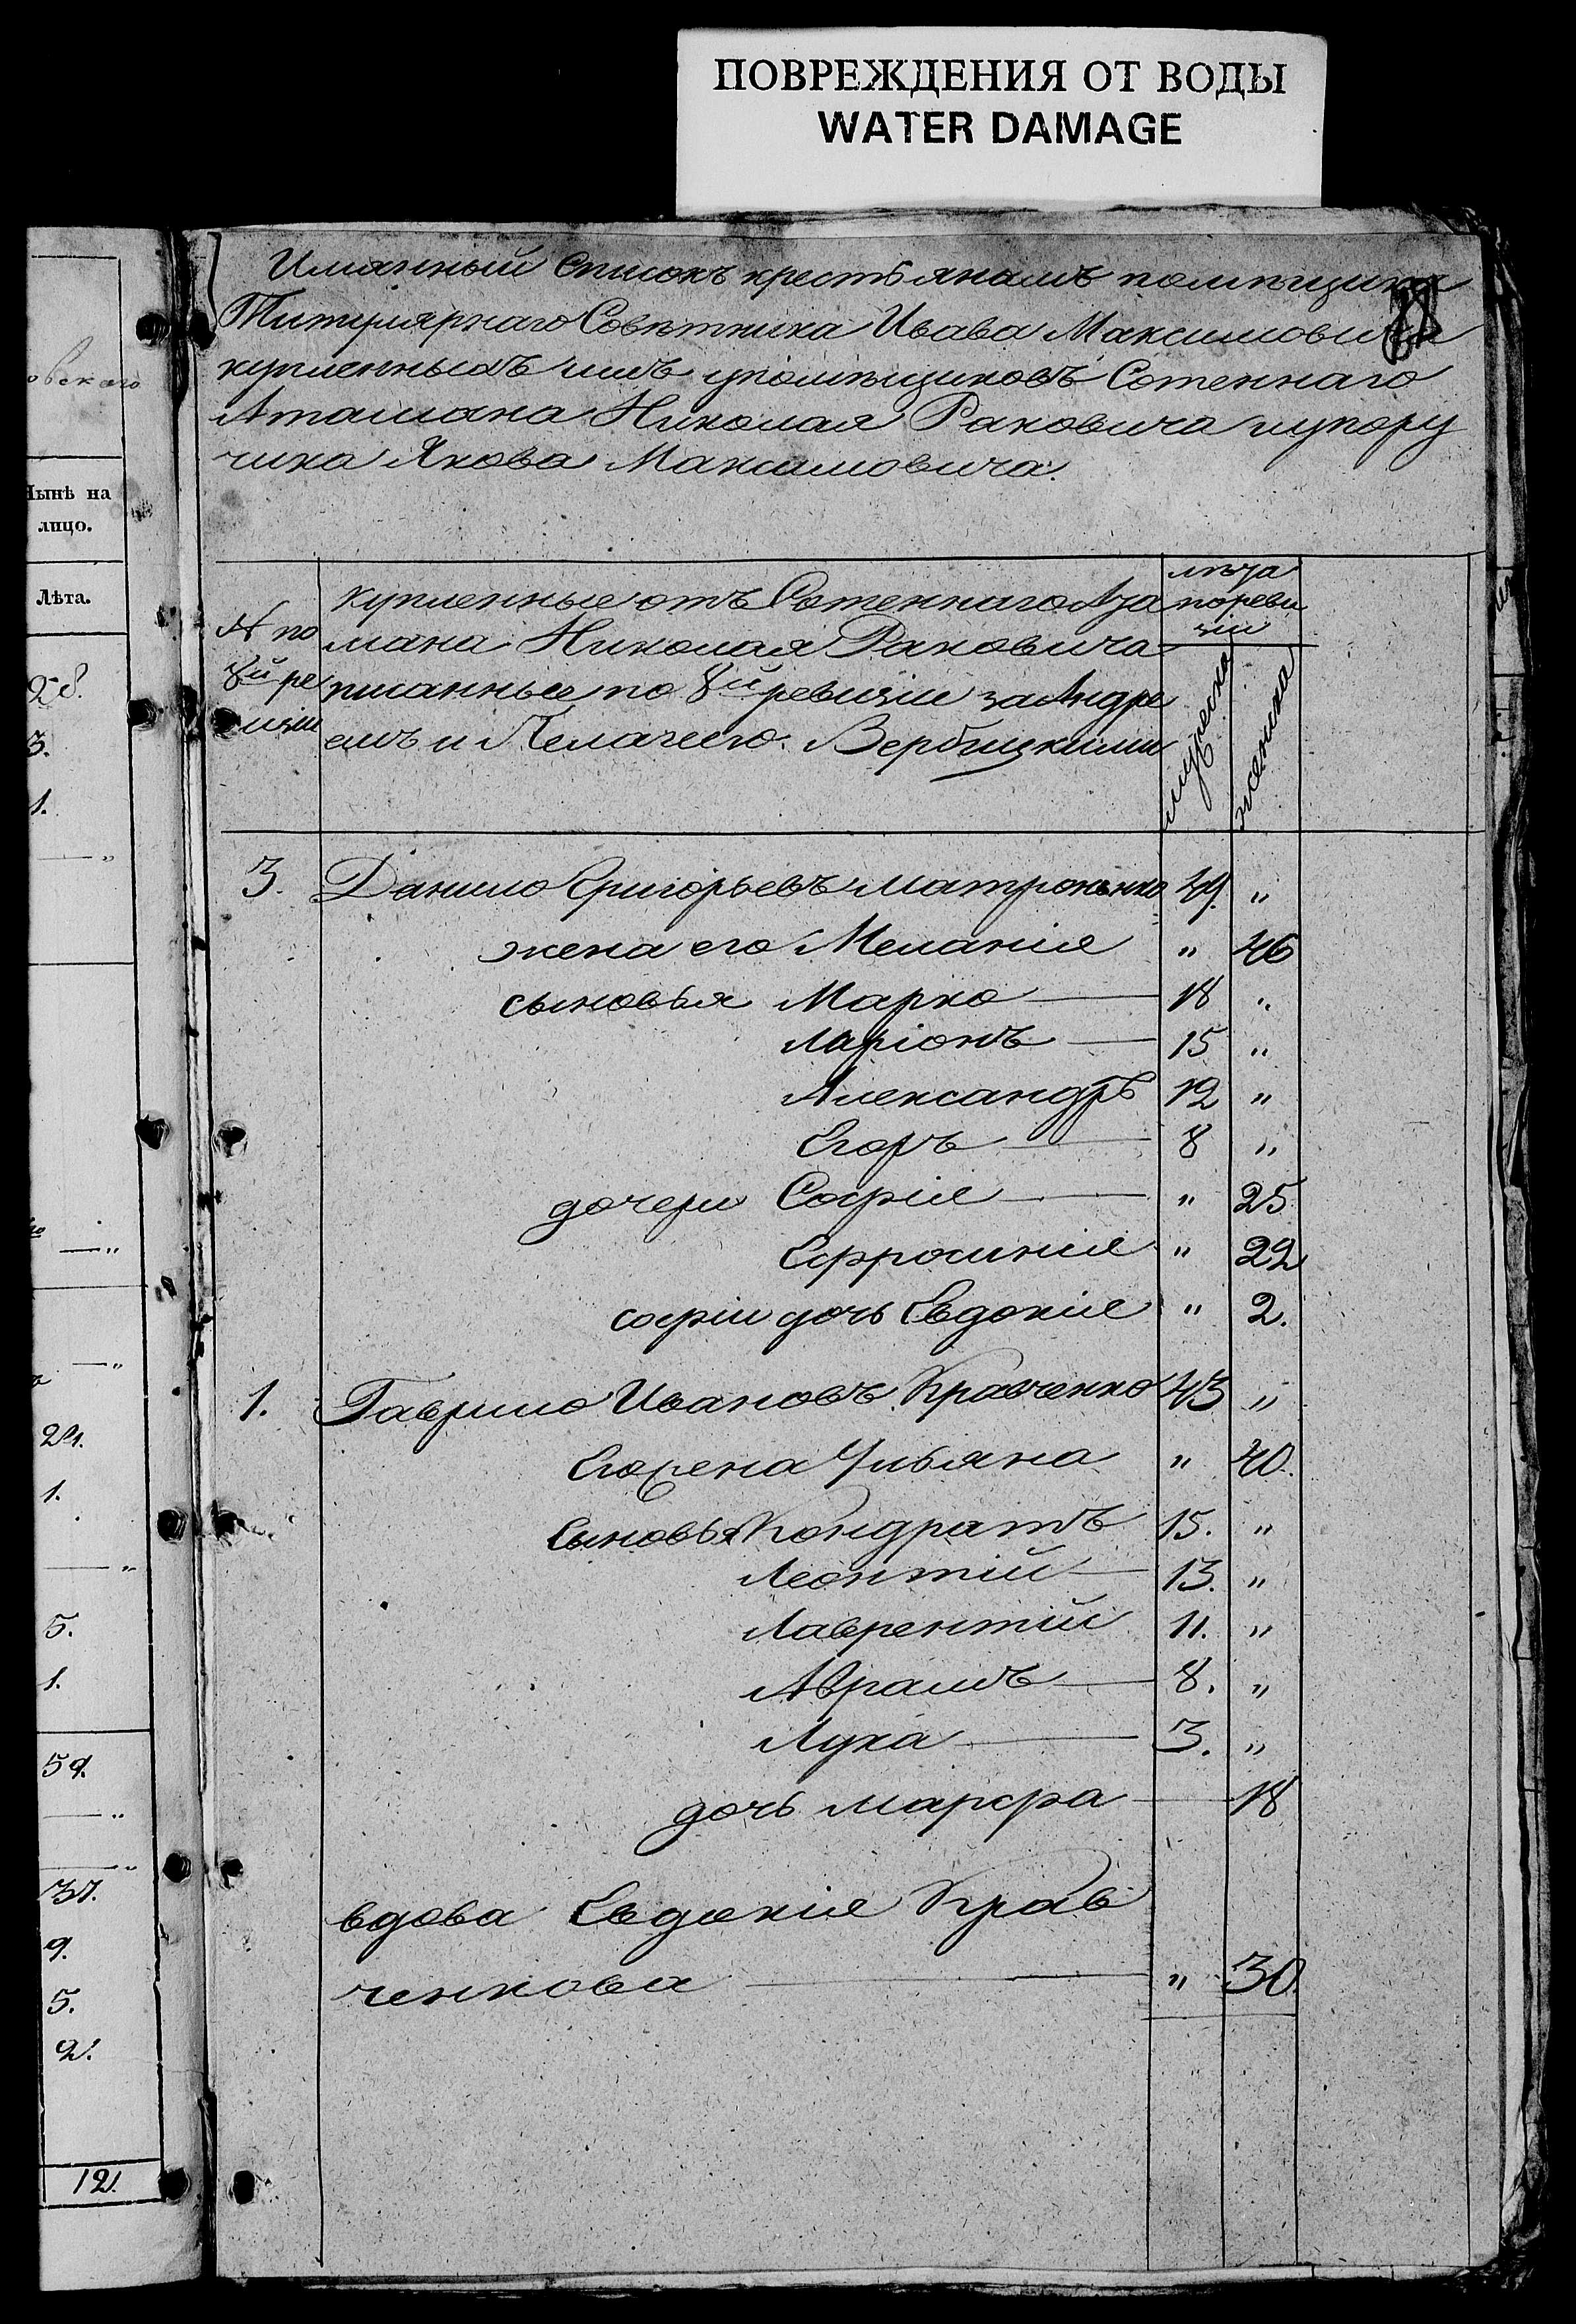 ПОВРЕЖДЕНИЯ ОТ ВОДЫ
WATER DAMAGE
овскаго
Нынѣ на
лицо.
Лѣта.
28.
3.
1.
21.
1.
5.
1.
59.
37.
9.
5.
2.
12.
Имянный списокъ крестьянамъ помѣщика
Титулярнаго Совѣтника Ивава Максимовича
купленнымъ имъ упомѣщиковъ Сотеннаго
Атамана Николая Раковича ипору
чика Якова Максимовича.
№ по
8й ре
визіи
купленные отъ Сотеннаго Ата
мана Николая Раковича
писанные по 8й ревизіи заАндре
емъ и Пелагеею Вербицкими
лѣта
по реви
зіи
мужеска
женска
3. Данило Григорьевъ Матроненко 49. "
жена его Меланія " 46
сыновья Марко 18 "
Ларіонъ 15 "
Александръ 12 "
Егоръ 8 "
дочери Софія " 25
Ефросинія " 22
софіи дочь Евдокія " 2.
1. Гаврило Ивановъ Кравченко 43 "
Егожена Ульяна " 40.
Сыновья Кондратъ 15. "
Леонтій 13. "
Лаврентій 11. "
Абрамъ 8. "
Лука 3. "
дочь марфа 18
вдова Евдокія Крав
ченкова " 30.